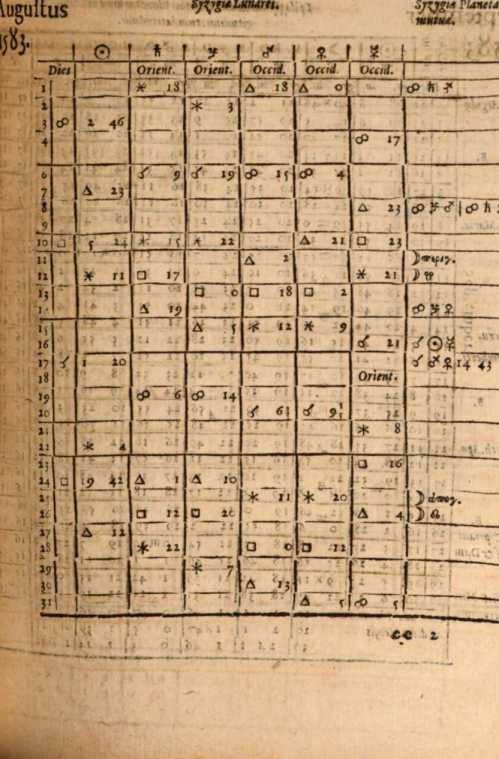 Augustus Syzygiæ Lunares. Syzygiæ Planeta
1583. mutuæ.
☉ ♄ ♃ ♂ ♀ ☿
Dies Orient. Orient. Occid. Occid. Occid.
1 ⚹ 18 △ 18 △ 0 ☍ ♄
2 ⚹ 3
3 ☍ 2 46
4 ☍ 17
6 ☌ 9 ☌ 19 ☍ 15 ☍ 4
7 △ 23
8 △ 23 ☍ ♃ ♂ ☍ ♄
10 □ 5 24 ⚹ 15 ⚹ 22 △ 21 □ 23
11 △ 2 ☽
12 ⚹ 11 □ 17 ⚹ 21 ☽
13 □ 0 □ 18 □ 2
△ 19 ☍ ♃ ♀
15 △ 5 ⚹ 12 ⚹ 9
16 ☌ 21 ☌ ☉ ☿
17 ☌ 1 20 ☌ ♂ ♀ 14 43
18 Orient.
19 ☍ 6 ☍ 14
20 ☌ ☌
21 ⚹ 8
22 ⚹ 4
23 □ 16
24 □ 9 42 △ 1 △ 10
25 ⚹ 11 ⚹ 20 ☽ ἀπογ.
26 □ 12 □ 20 △ 4 ☽ ☊
27 △ 12
28 ⚹ 22 □ 0 □ 12
29 ⚹ 7
30 △ 13
31 △ 5 ☍ 5
cc 2